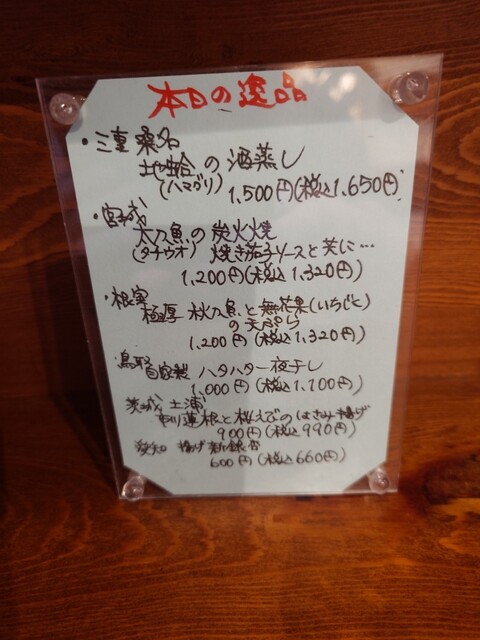 本日の逸品
・三重 桑名
地蛤の酒蒸し
(ハマグリ) 1,500円(税込1,650円)
・宮城
太刀魚の炭火焼
(タチウオ) 焼き茄子ソースと共に…
1,200円(税込1,320円)
・根室
極厚 秋刀魚と無花果(いちじく)
の天ぷら
1,200円(税込1,320円)
鳥取
自家製 ハタハタ一夜干し
1,000円(税込1,100円)
茨城 土浦
蓮根と桜えびのはさみ揚げ
900円(税込990円)
愛知 揚げ新銀杏
600円(税込660円)